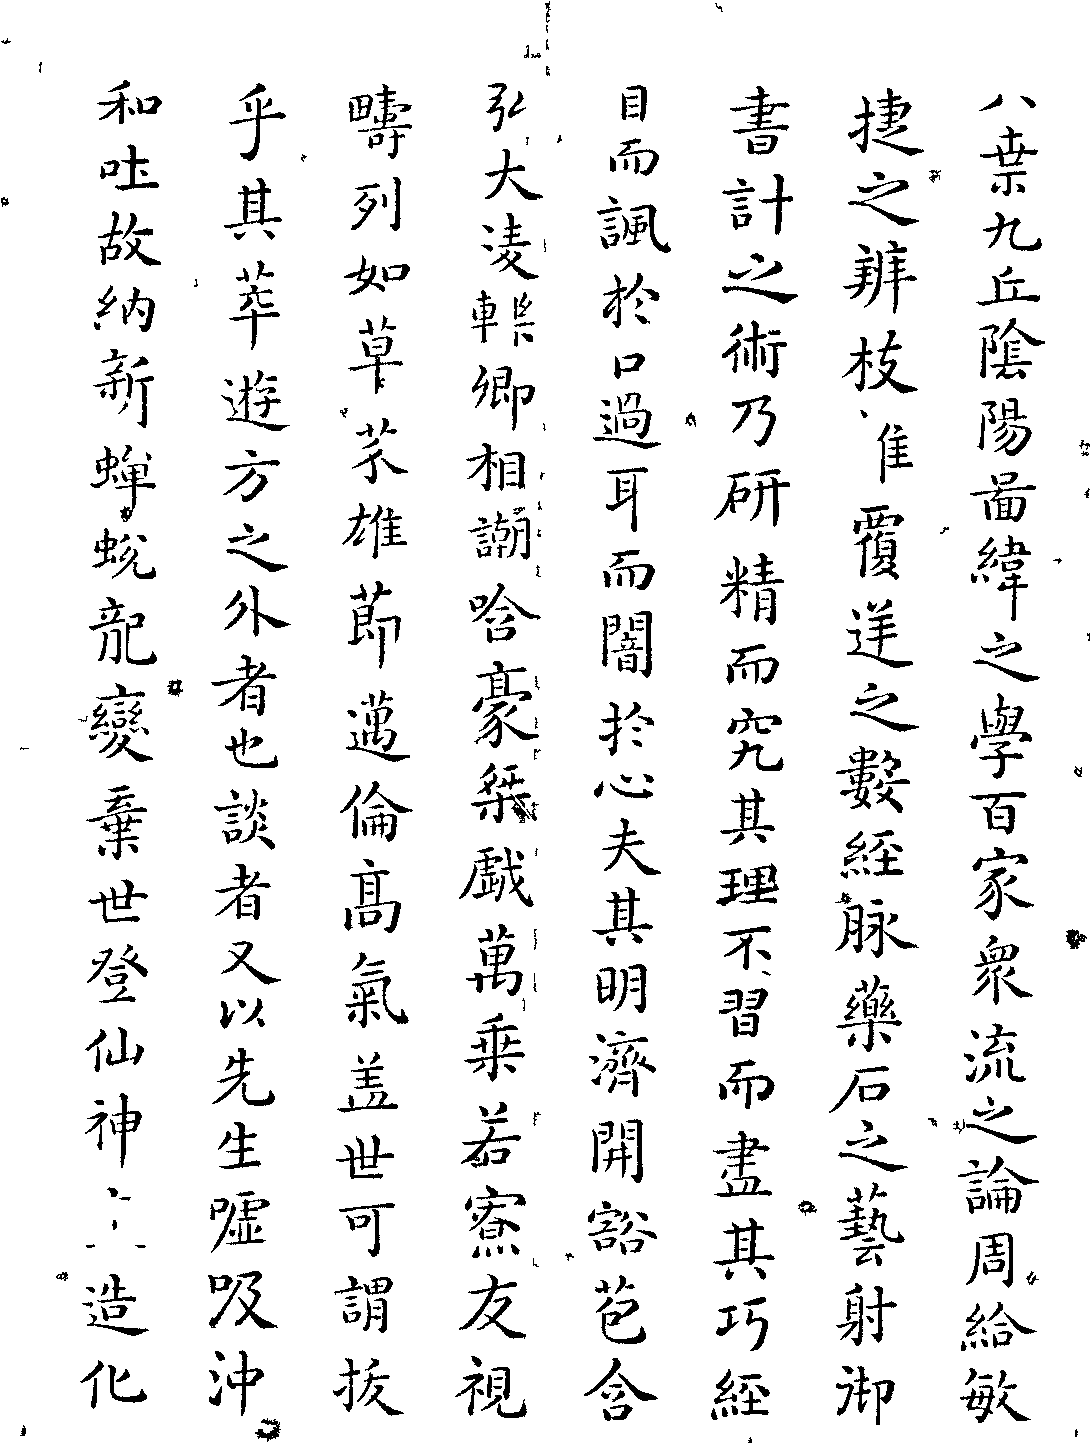 八索九丘陰陽啚緯之學百家衆流之論周給敏
捷之辨枝離覆逆之數經脉藥石之藝射御
書計之術乃研精而究其理不習而盡其巧經
目而諷於口過耳而闇於心夫其明濟開豁苞含
弘大凌轢卿相謿哈豪桀戲萬乘若寮友視
疇列如草芥雄節邁倫髙氣盖世可謂拔
乎其萃遊方之外者也談者又以先生噓吸沖
和吐故納新蟬蛻龍變棄世登仙神造化